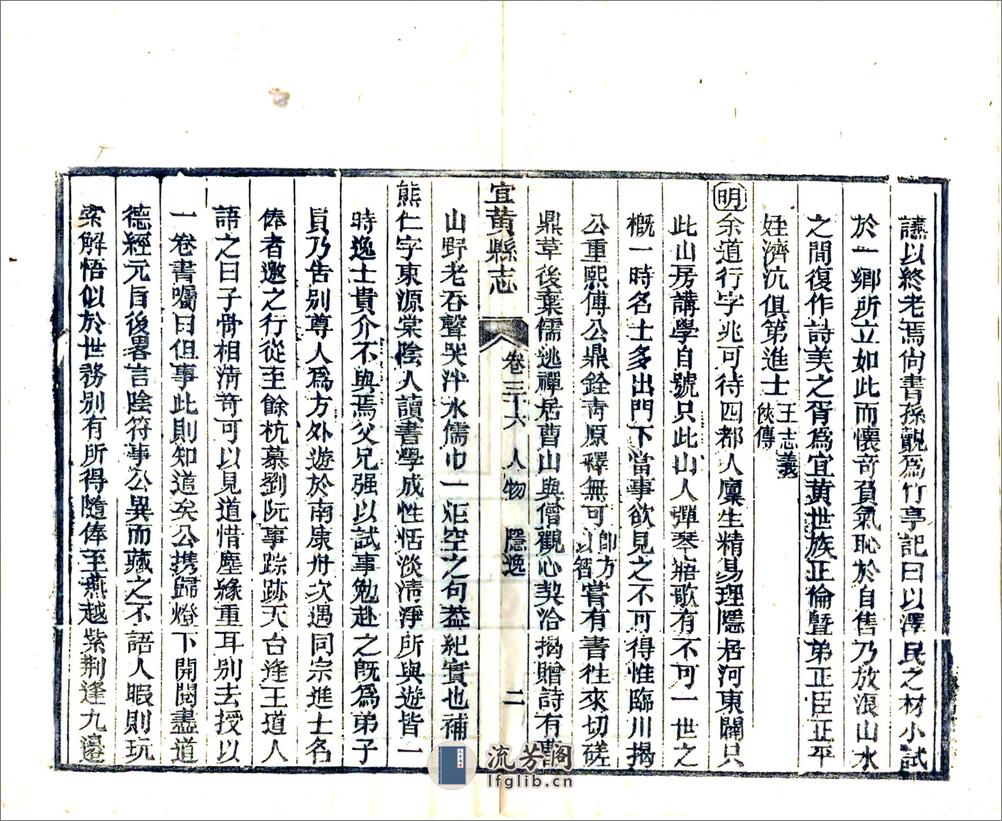 讌以終老焉尚書孫覿爲竹亭記曰以澤民之材小試
於一鄉所立如此而懷奇負氣恥於自售乃放浪山水
之間復作詩美之胥爲宜黄世族正倫暨弟正臣正平
姪濟沆俱第進士王志義俠傳
明余道行字兆可待四都人廩生精易理隱居河東闢只
此山房講學自號只此山人彈琴寤歌有不可一世之
概一時名士多出門下當事欲見之不可得惟臨川揭
公重熙傅公鼎銓靑原釋無可即方以智嘗有書徃來切磋
鼎革後棄儒逃禪居曹山與僧觀心契洽揭贈詩有
宜黄縣志 卷三十六 人物 隱逸 二
山野老吞聲哭泮水儒巾一炬空之句葢紀實也補
熊仁字東源棠陰人讀書學成性恬淡淸淨所與遊皆一
時逸士貴介不與焉父兄强以試事勉赴之旣爲弟子
員乃告別尊人爲方外遊於南康舟次遇同宗進士名
俸者邀之行從至餘杭慕劉阮事踪跡天台逢王道人
語之曰子骨相淸奇可以見道惜塵緣重耳別去授以
一卷書囑曰但事此則知道矣公携歸燈下開閱盡道
德經元旨後畧言陰符事公異而藏之不語人暇則玩
索解悟似於世務別有所得隨俸至燕越紫荆逢九邉
流芳閣
lfglib.cn